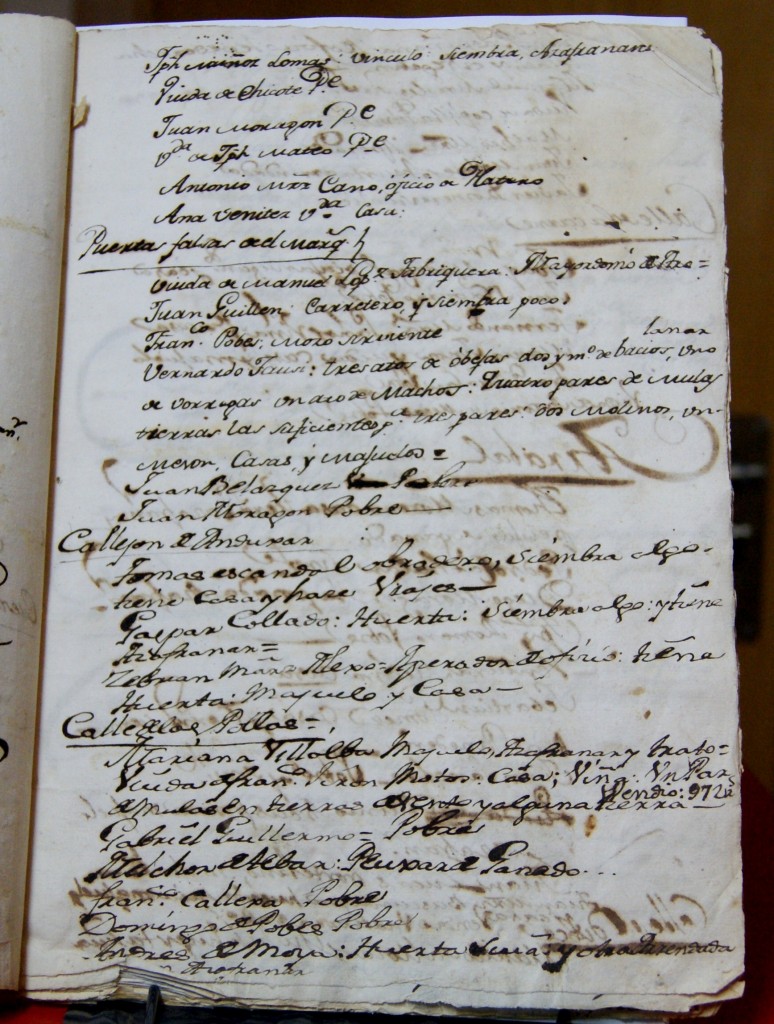 Jph Muñoz Lomas: vinculo siembra, Azafranares
Viuda de Chicote P.e
Juan Moragon P.e
v.da de Jph Mateo P.e
Antonio Mrz Cano, oficio de Platero
Ana Venitez v.da Casa:
Puertas falsas del Marq.s
Viuda de Manuel Lopz Fabriquera: Mayordomo de
Juan Guillen Carretero, y siembra poco,
Fran.co Pobes, Moso sirviente
Vernardo Jaus: tres atos de obejas dos y m.o de bacios, uno lanar
de vorregas un ato de Machos: Quatro pares de Mulas
tierras las suficientes p.a tres pares: dos Molinos, un
Meson, Casas, y Majuelos =
Juan Belazquez Pobre
Juan Moragon Pobre —
Callejon de Andujar
Tomas escandel obragero, siembra algo
tiene Casa y hase Viajes —
Gaspar Collado: Huerta: Siembra algo: y tiene
Azafranar =
Zebrian Mrz Alexo = Aperador de ofisio: tiene
Huerta: Majuelo y Casa —
Calle de las Pollas =
Mariana Villalba Majuelo, Azafranar y trato =
Viuda de Fran.co Giron Motos: Casa; Viña: Un Par
de mulas en tierras de vento y alguna tierra — Vendio: 972
Gabriel Guillermo = Pobre
Melchor de Albar: de Ganado...
Fran.co Callera Pobre
Domingo de Pobes Pobre
Andres de Moya: Huerta y otra Arrendada
Azafranar